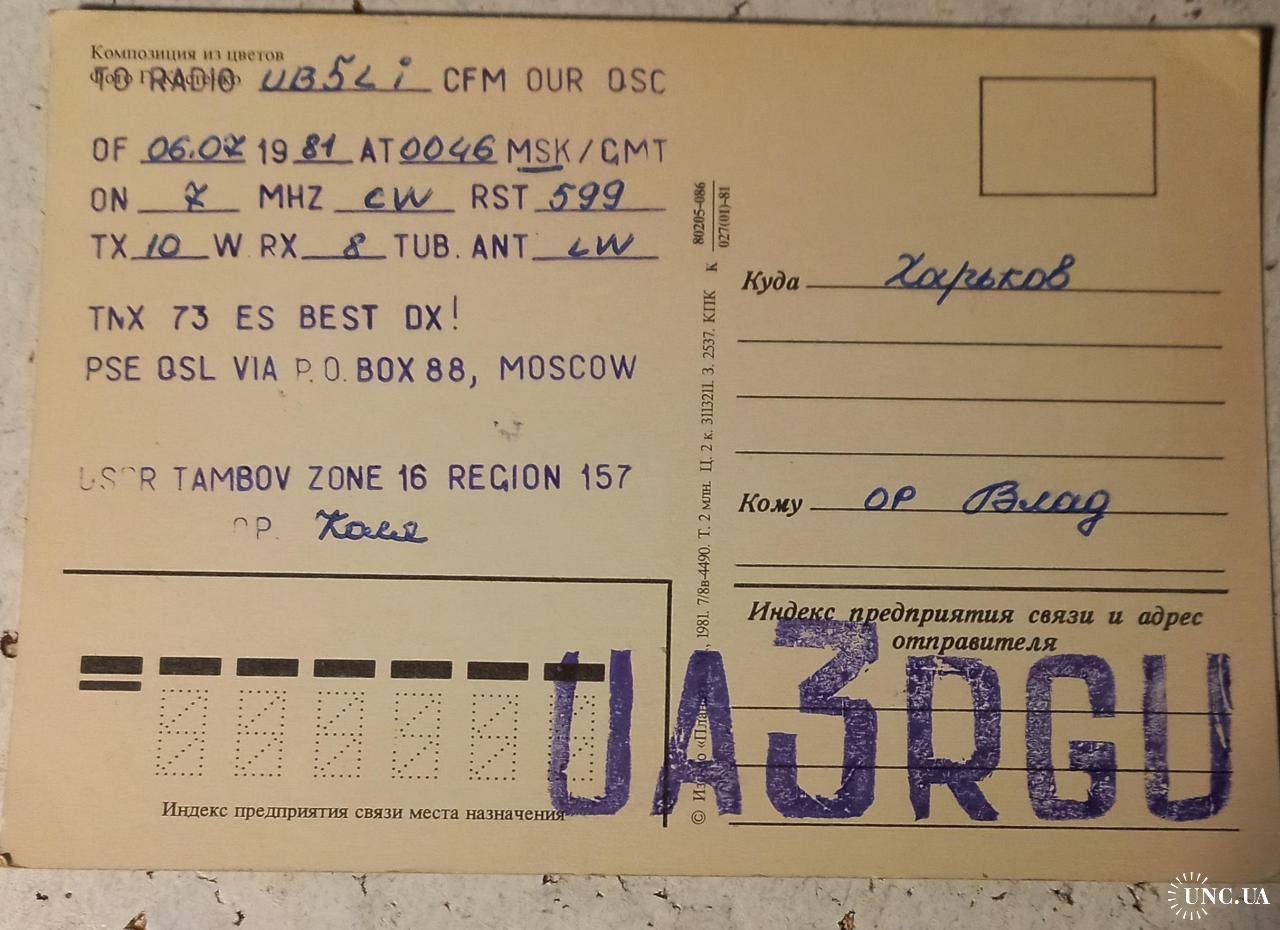 Композиция из цветов
Фото Г. Костенко
TO RADIO UB5Li CFM OUR QSO
OF 06.07 1981 AT 0046 MSK/GMT
ON 7 MHZ CW RST 599
TX 10 W RX 8 TUB. ANT LW
TNX 73 ES BEST DX!
PSE QSL VIA P.O. BOX 88, MOSCOW
USSR TAMBOV ZONE 16 REGION 157
OP. Коля
Индекс предприятия связи места назначения
80205-086
027(01)-81
К
, 1981. 7/8в-4490. Т. 2 млн. Ц. 2 к. 3113211. З. 2537. КПК
Куда Харьков
Кому ОР Влад
Индекс предприятия связи и адрес
отправителя
UA3RGU
UNC.UA